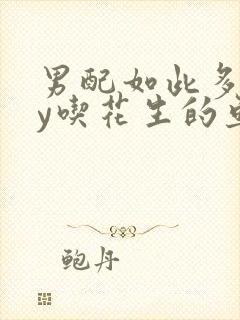 男配如此多
y喫花生的
鲍丹